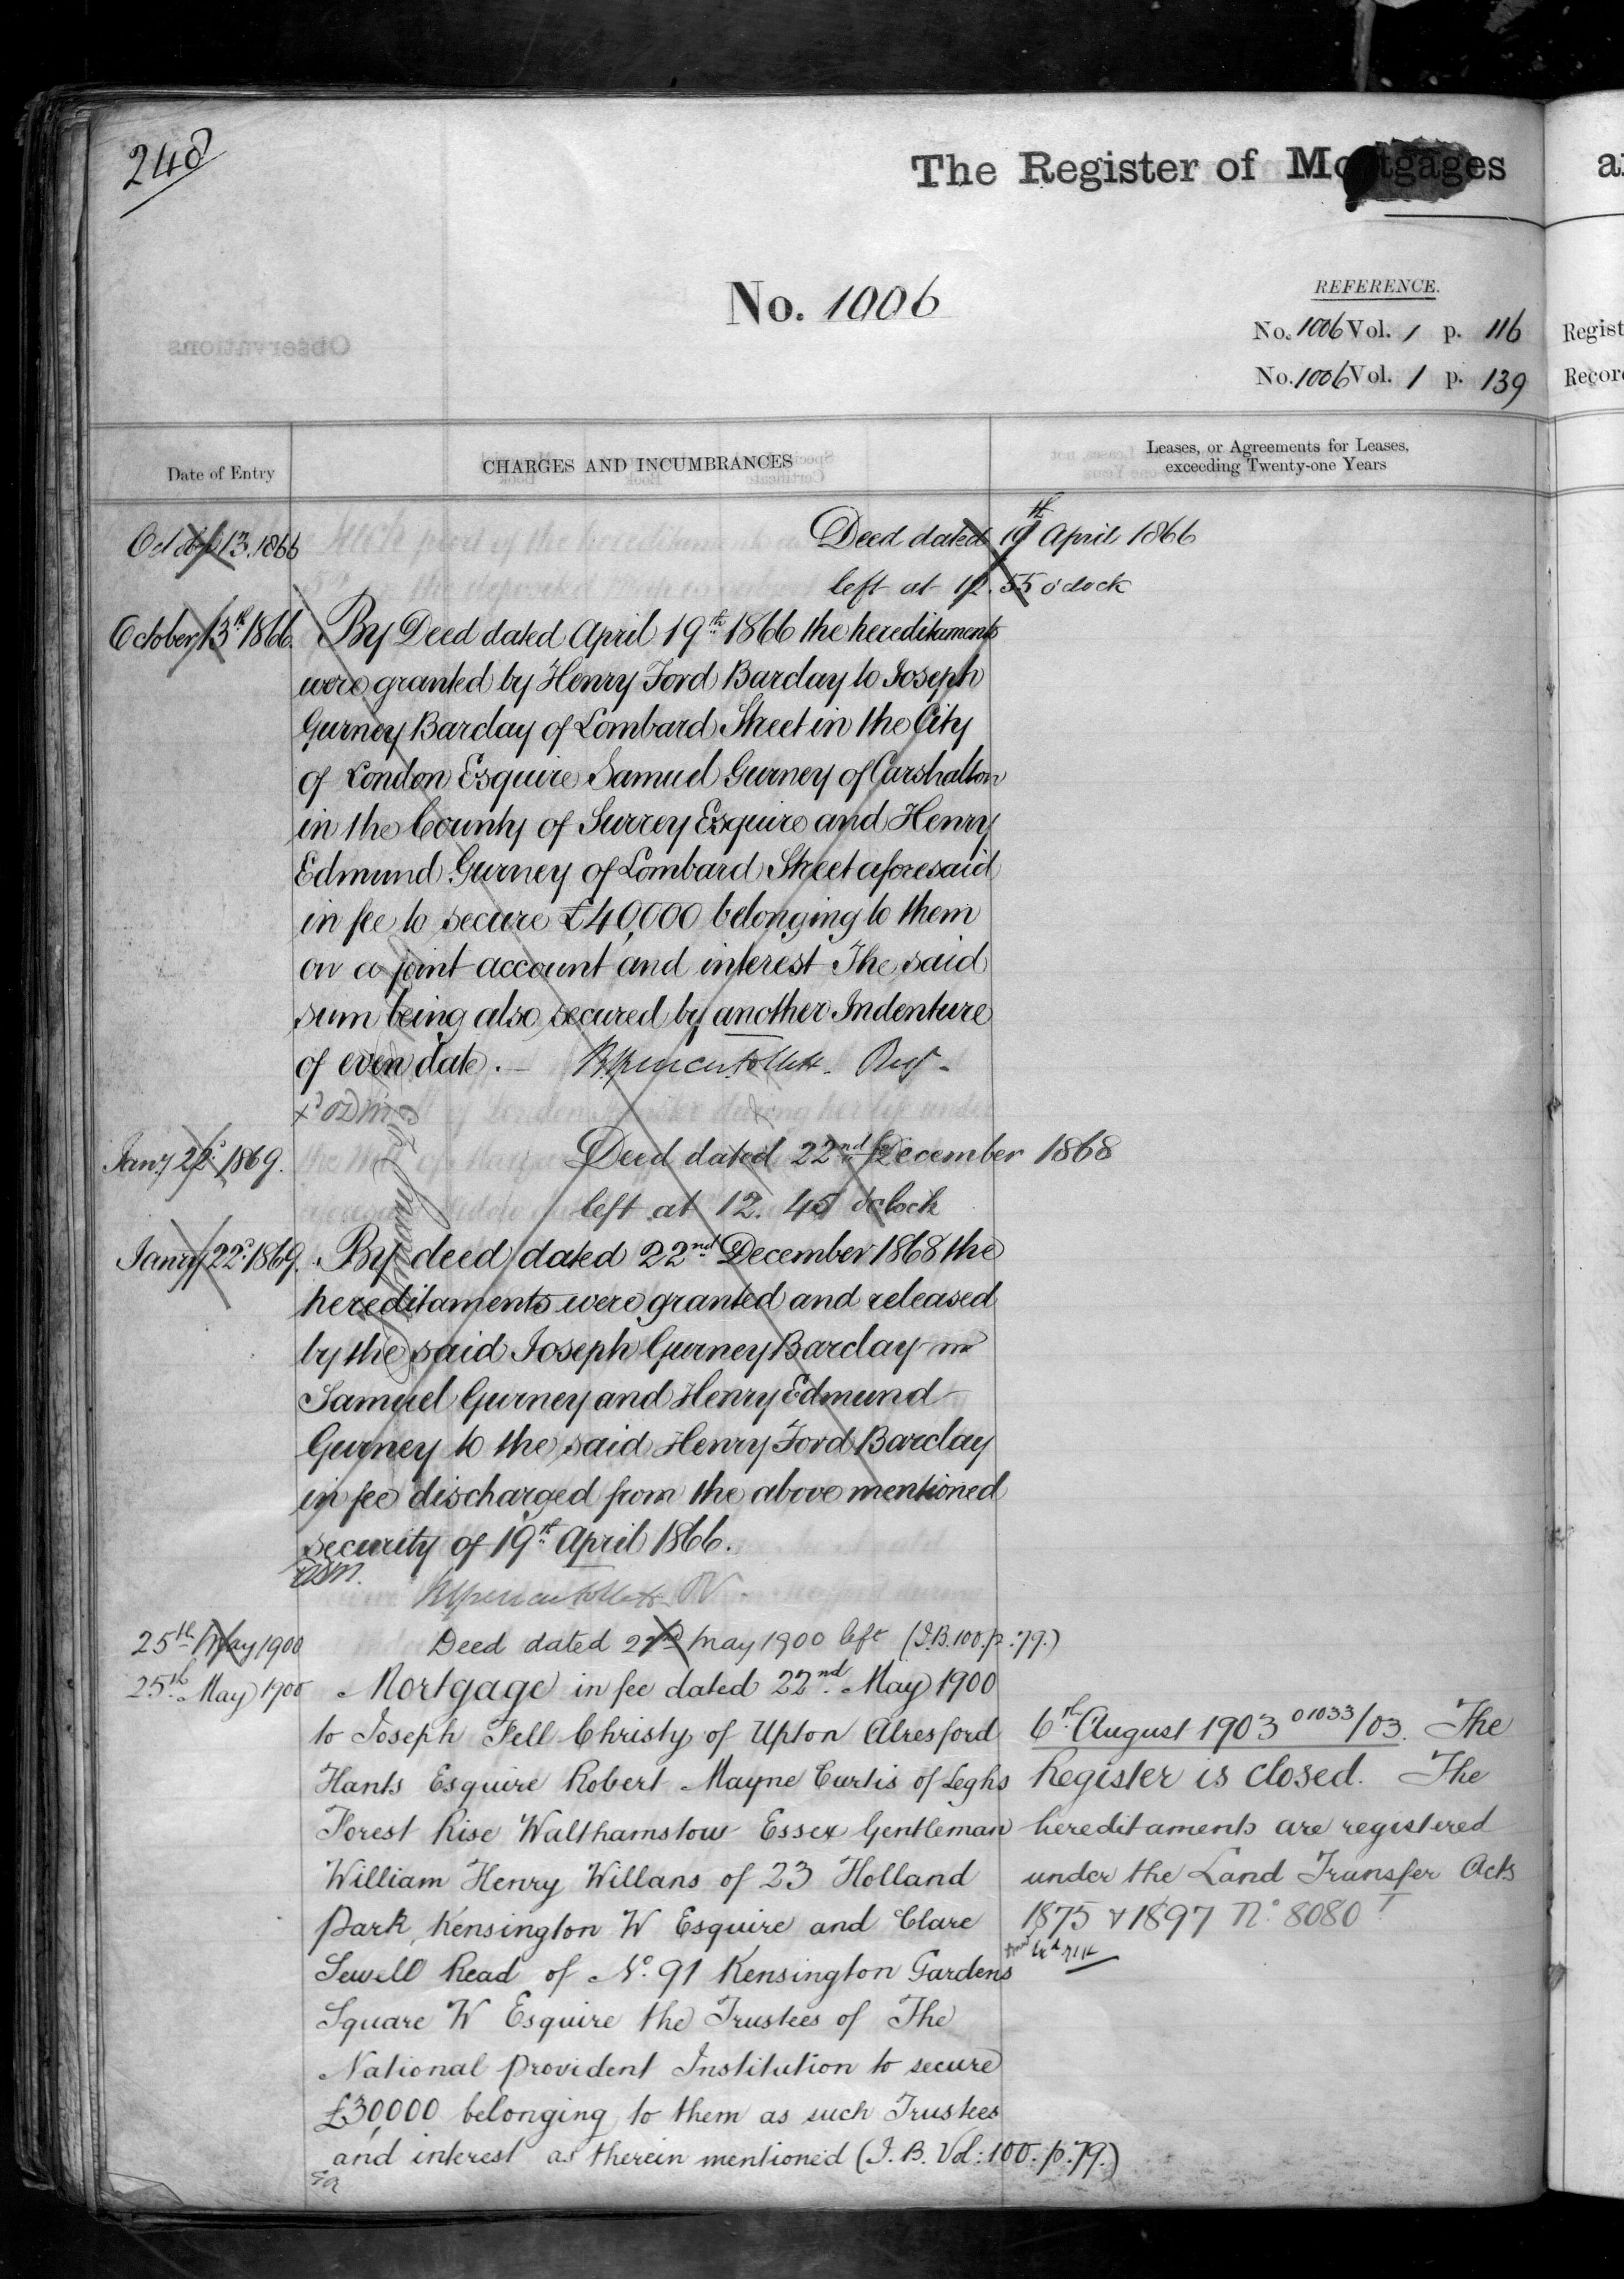 248
The Register of Mortgages
No. 1006
REFERENCE.
No. 1006 Vol. 1 p. 116
No. 1006 Vol. 1 p. 139
Regist
Recor
Date of Entry
CHARGES AND INCUMBRANCES
Leases, or Agreements for Leases,
exceeding Twenty-one Years
Deed dated 19th April 1866
13. 1866
left at 12.55 o'clock
October 13th 1866. By Deed dated April 19th 1866 the hereditaments
were granted by Henry Ford Barclay to Joseph
Gurney Barclay of Lombard Street in the City
of London Esquire Samuel Gurney of Carshalton
in the County of Surrey Esquire and Henry
Edmund Gurney of Lombard Street aforesaid
in fee to secure £40,000 belonging to them
on a joint account and interest The said
sum being also secured by another Indenture
of even date.
Jany 22d 1869. Deed dated 22nd December 1868
left at 12.45 o'clock
Janry 22d 1869. By deed dated 22nd December 1868 the
hereditaments were granted and released
by the said Joseph Gurney Barclay
Samuel Gurney and Henry Edmund
Gurney to the said Henry Ford Barclay
in fee discharged from the above mentioned
security of 19th April 1866.
25th May 1900 Deed dated 22nd May 1900 left (I.B.100.p.79.)
25th May 1900 Mortgage in fee dated 22nd May 1900
to Joseph Fell Christy of Upton Alresford
Hants Esquire Robert Mayne Curtis of Leghs
Forest Rise Walthamstow Essex Gentleman
William Henry Willans of 23 Holland
Park, Kensington W Esquire and Clare
Sewell Read of No. 91 Kensington Gardens
Square W Esquire the Trustees of The
National Provident Institution to secure
£30,000 belonging to them as such Trustees
and interest as therein mentioned (I.B. Vol: 100. p. 79.)
6th August 1903 01033/03. The
Register is closed. The
hereditaments are registered
under the Land Transfer Acts
1875 & 1897 No. 8080